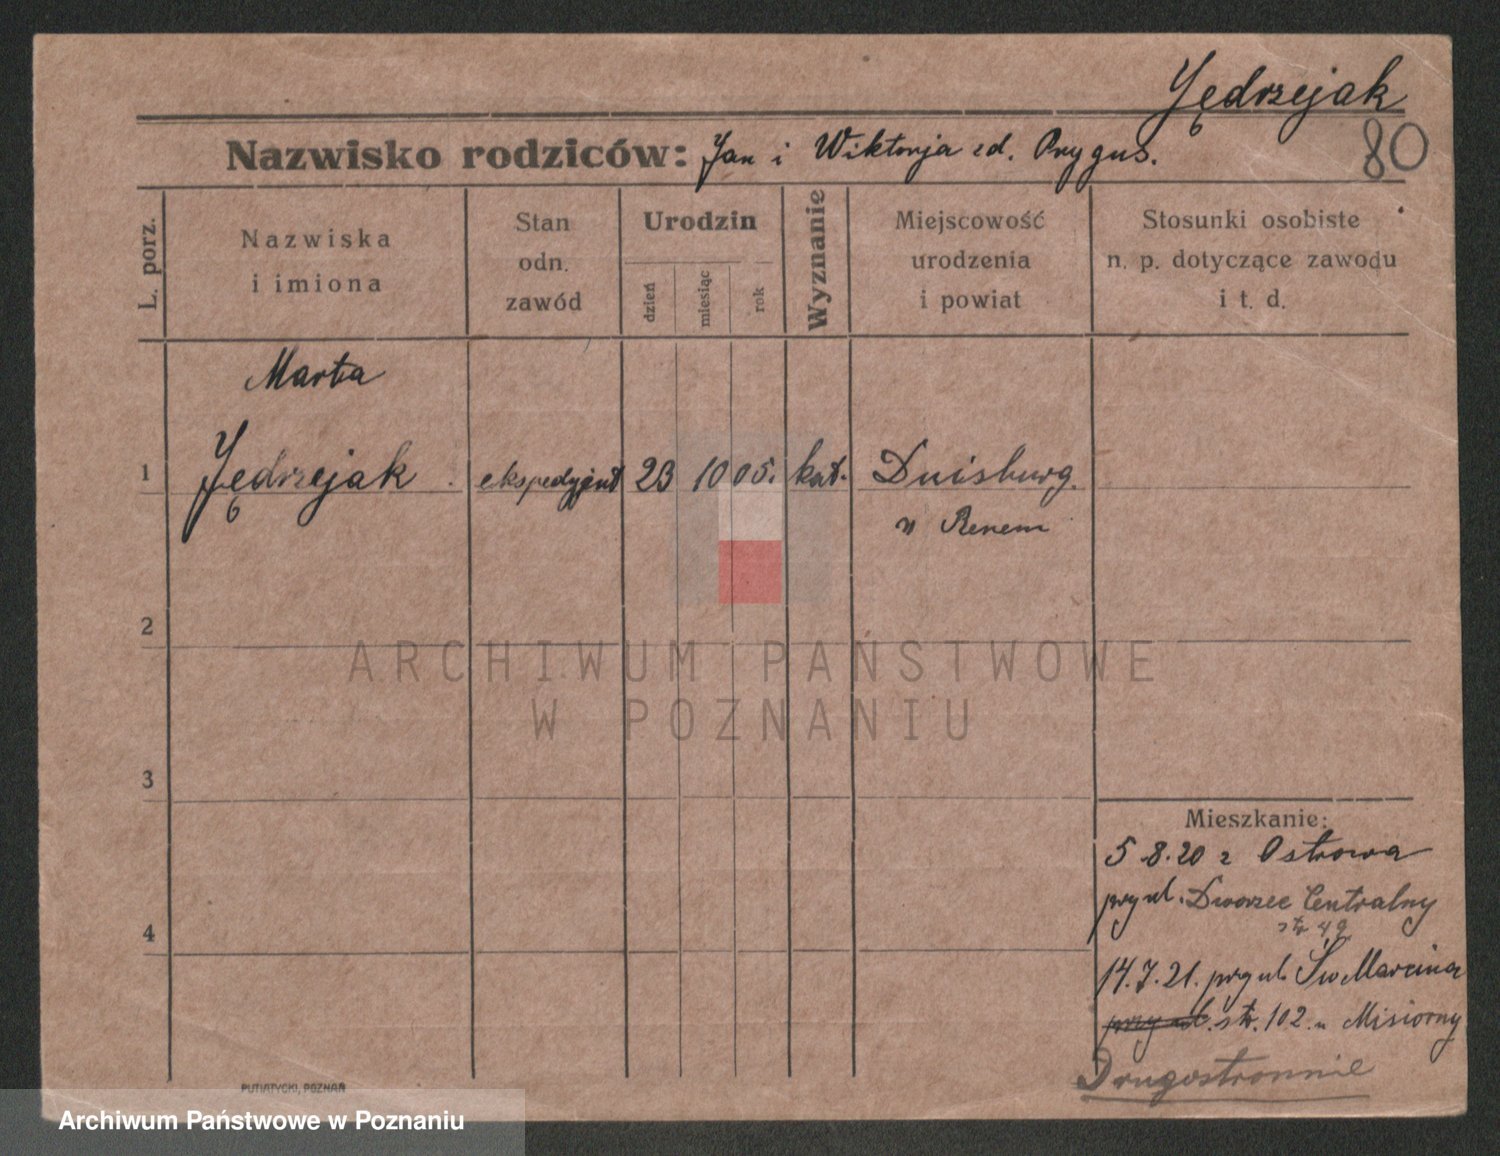 Jędrzejak
80
Nazwisko rodziców: Jan i Wiktorja zd. Prygus.
L. porz.
Nazwiska
i imiona
Stan
odn.
zawód
Urodzin
dzień
miesiąc
rok
Wyznanie
Miejscowość
urodzenia
i powiat
Stosunki osobiste
n. p. dotyczące zawodu
i t. d.
Marta
1 Jędrzejak ekspedyjent 23 10 05. kat. Duisburg.
n Renem
2
ARCHIWUM PAŃSTWOWE
W POZNANIU
3
Mieszkanie:
5.8.20 z Ostrowa
przy ul. Dworzec Centralny
4
14.7.21. przy ul. Św Marcina
przy ul. str. 102 u Misiorny
Drugostronnie
PUTIATYCKI, POZNAŃ
Archiwum Państwowe w Poznaniu